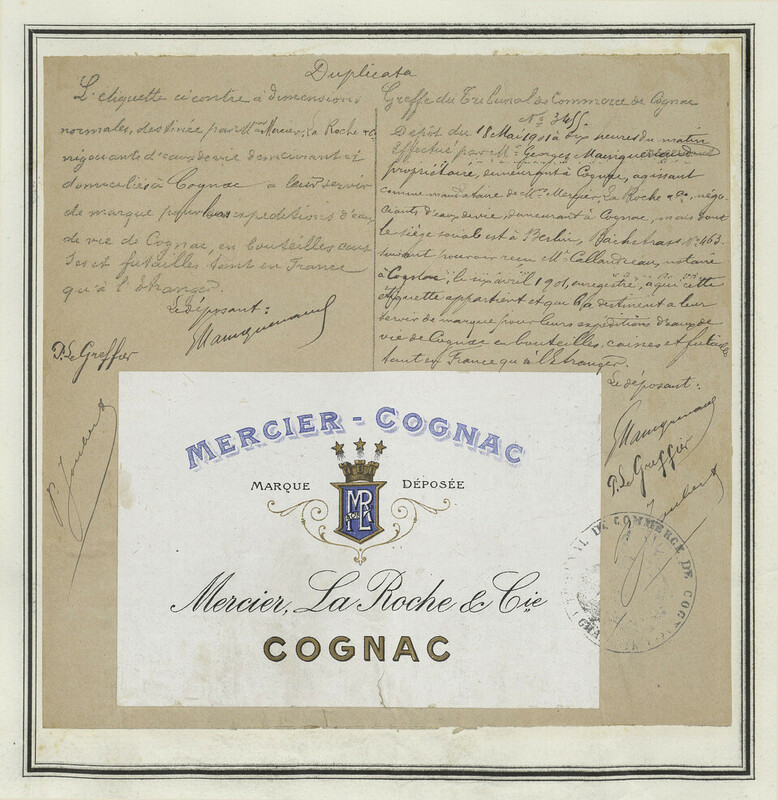 Duplicata
L'etiquette ci contre à dimensions
normales, destinée par Mrs Mercier, La Roche & Co
négociants d'eaux de vie demeurant et
domiciliés à Cognac a leur servir
de marque pour les expeditions d'eaux
de vie de Cognac, en bouteilles caisses
et futailles tant en France
qu'à l'étranger.
Le déposant:
P. Le Greffier
Greffe du Tribunal de Commerce de Cognac
No 3455.
Dépôt du 18 Mai 1901 à dix heures du matin
effectué par Mr Georges
propriétaire, demeurant à Cognac, agissant
comme mandataire de Mrs Mercier, La Roche & Co, négo-
ciants d'eaux de vie, demeurant à Cognac, mais dont
le siège social est à Berlin, No 463.
suivant pouvoir reçu Me Callandreau, notaire
à Cognac, le avril 1901, enregistré, à qui cette
étiquette appartient et qui la destinent a leur
servir de marque pour leurs expéditions d'eaux de
vie de Cognac en bouteilles, caisses et futailles
tant en France qu'à l'étranger.
Le déposant:
P. Le Greffier
MERCIER - COGNAC
MARQUE DÉPOSÉE
Mercier, La Roche & Cie
COGNAC
TRIBUNAL DE COMMERCE DE COGNAC